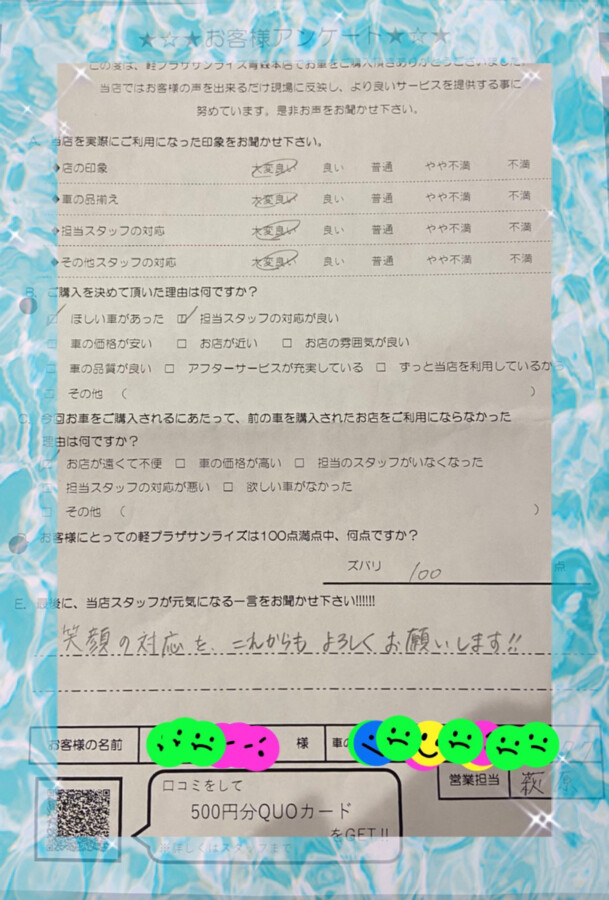 ★☆★お客様アンケート★☆★
この度は、軽プラザサンライズ青森本店でお車をご購入頂きありがとうございました。
当店ではお客様の声を出来るだけ現場に反映し、より良いサービスを提供する事に
努めています。是非お声をお聞かせ下さい。
A. 当店を実際にご利用になった印象をお聞かせ下さい。
◆店の印象 大変良い 良い 普通 やや不満 不満
◆車の品揃え 大変良い 良い 普通 やや不満 不満
◆担当スタッフの対応 大変良い 良い 普通 やや不満 不満
◆その他スタッフの対応 大変良い 良い 普通 やや不満 不満
B. ご購入を決めて頂いた理由は何ですか？
☑ ほしい車があった ☑ 担当スタッフの対応が良い
□ 車の価格が安い □ お店が近い □ お店の雰囲気が良い
□ 車の品質が良い □ アフターサービスが充実している □ ずっと当店を利用しているから
□ その他 （ ）
C. 今回お車をご購入されるにあたって、前の車を購入されたお店をご利用にならなかった
理由は何ですか？
☑ お店が遠くて不便 □ 車の価格が高い □ 担当のスタッフがいなくなった
□ 担当スタッフの対応が悪い □ 欲しい車がなかった
□ その他 （ ）
お客様にとっての軽プラザサンライズは100点満点中、何点ですか？
ズバリ 100 点
E. 最後に、当店スタッフが元気になる一言をお聞かせ下さい!!!!!!
笑顔の対応を、これからもよろしくお願いします!!
お客様の名前 様 車の
営業担当 萩原
口コミをして
500円分QUOカード
をGET!!
※詳しくはスタッフまで